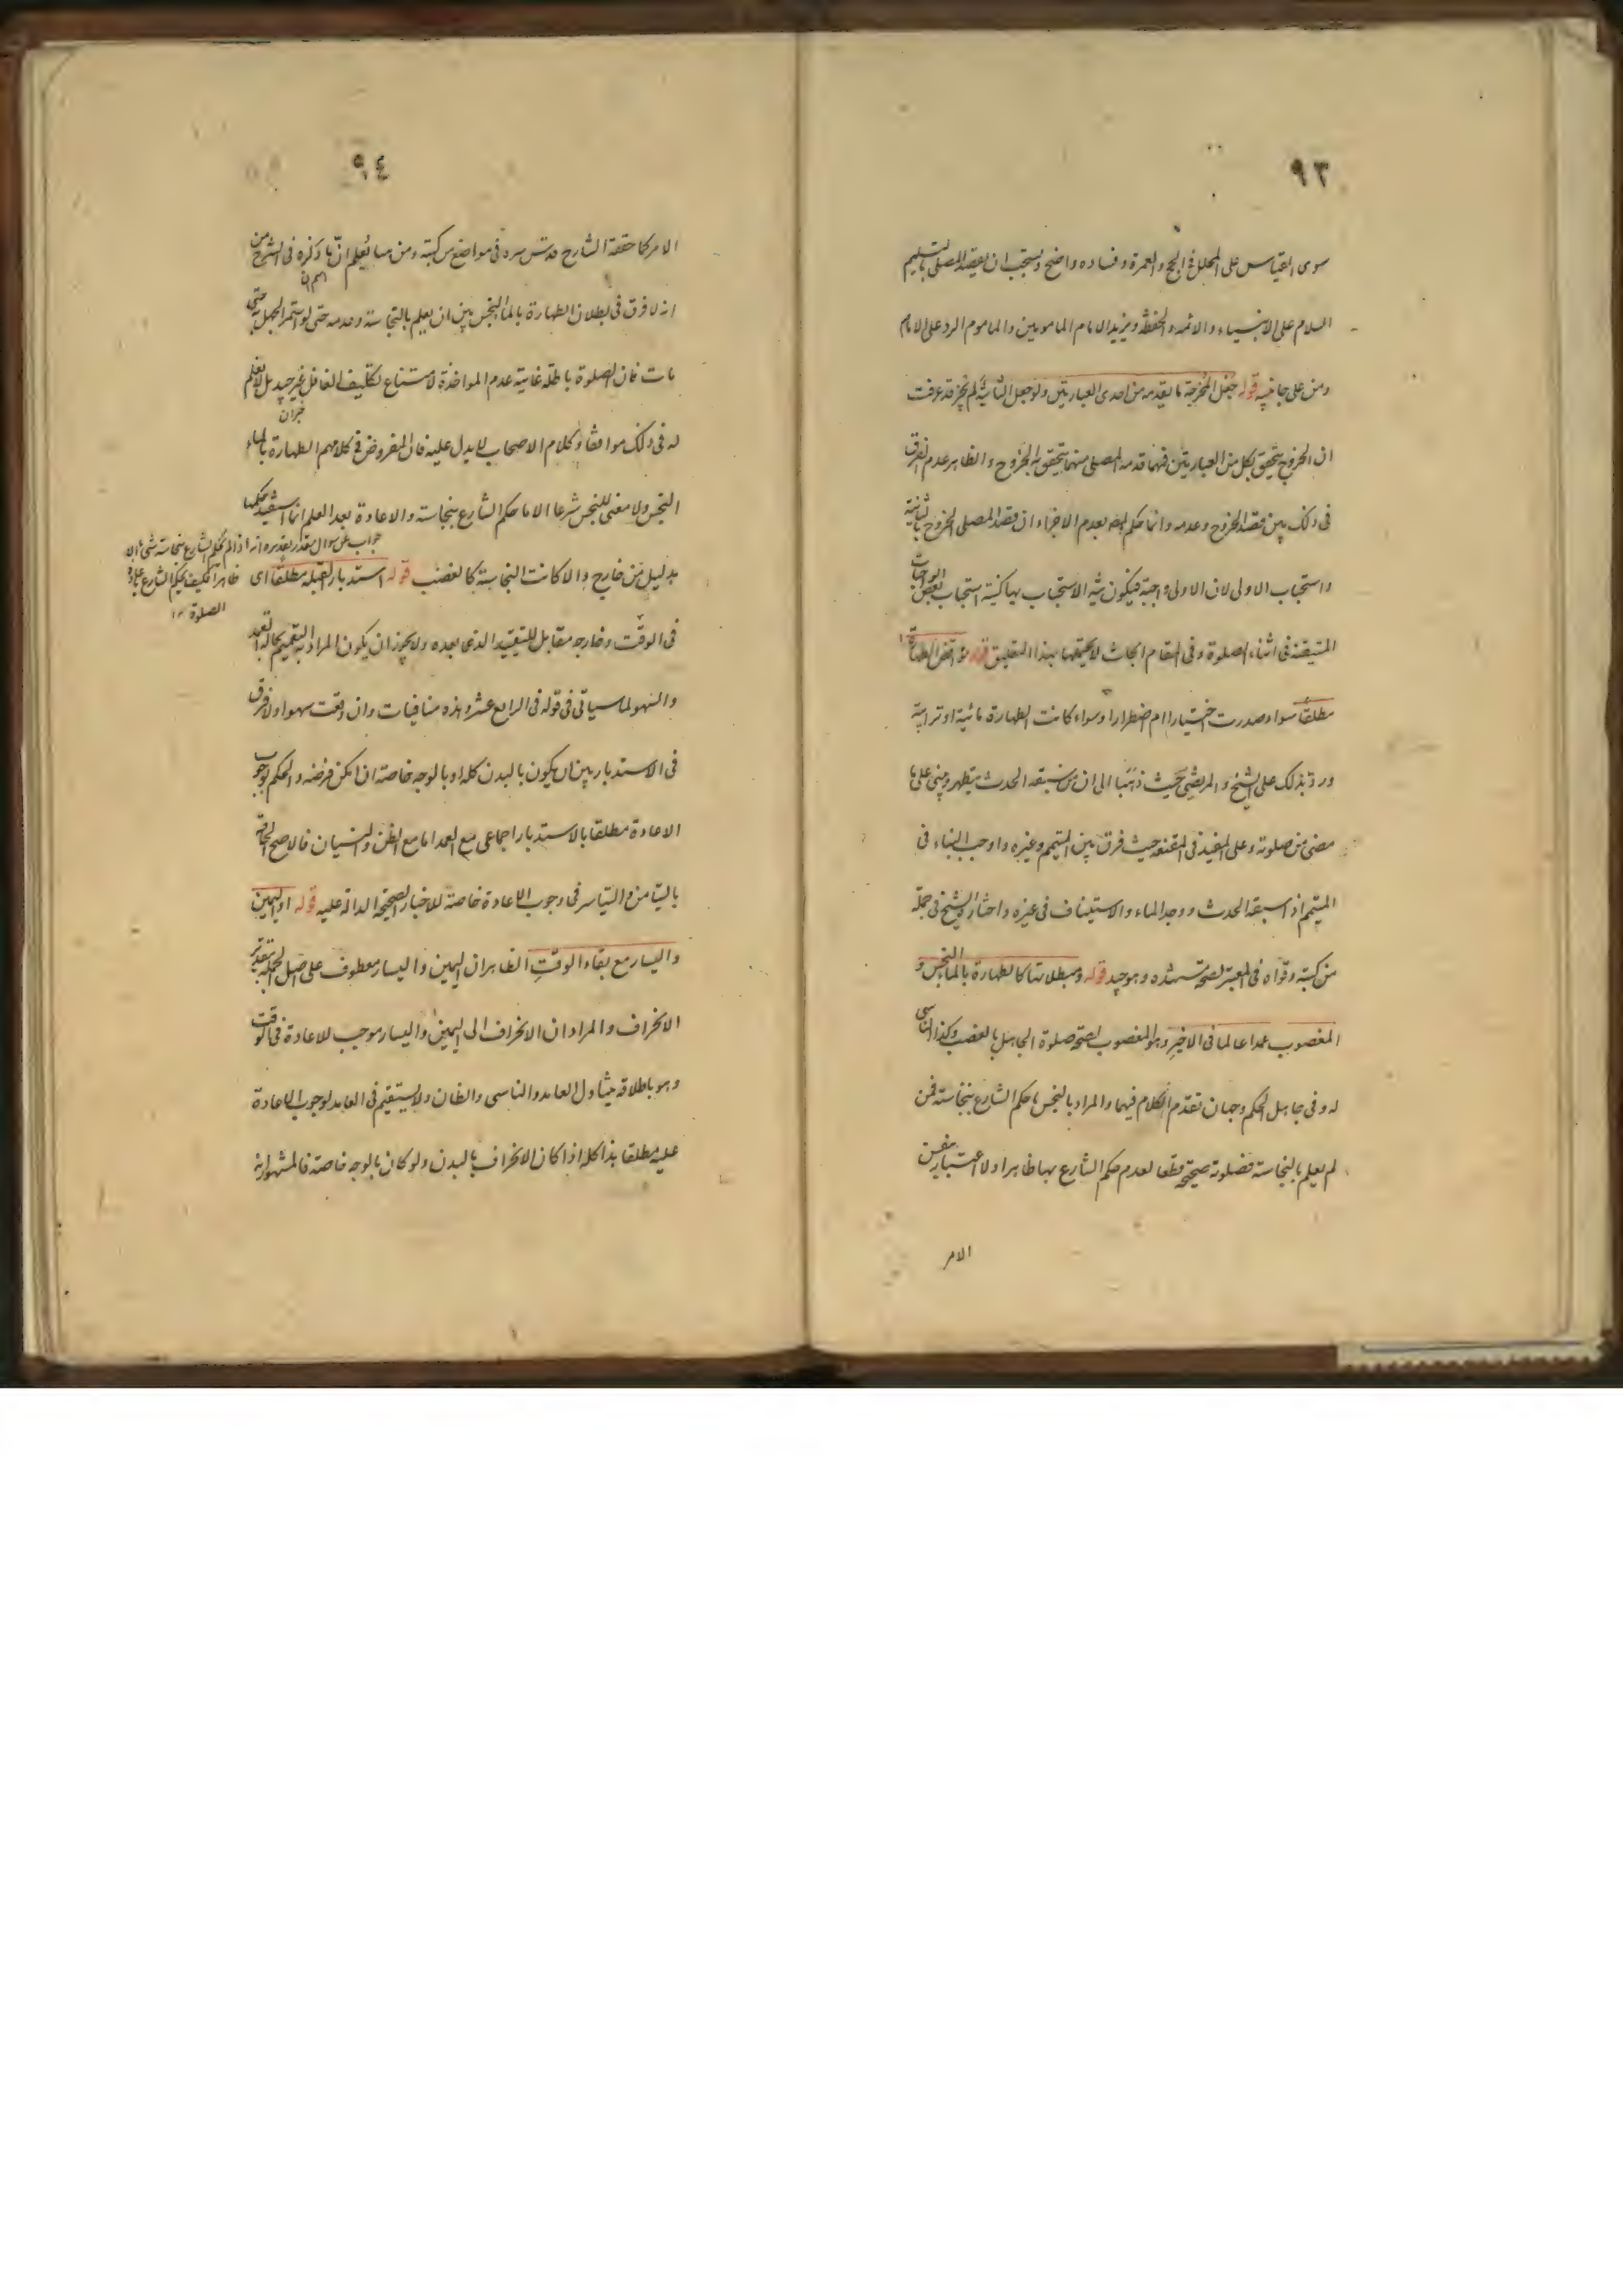 ٩٣
سوى القياس على المحلل فى الحج والعمرة وفساده واضح ويستحب ان يقصد المصلى بالتسليم
السلام على الانبياء والائمه والحفظه ويزيد الامام المامومين والماموم الرد على الامام
ومن على جانبيه قوله جعل المخرجة ما يقدمه من احدى العبارتين ولو جعل الثانية لم يجز قد عرفت
ان الخروج يتحقق بكل من العبارتين فبما قدمه المصلى منهما يتحقق به الخروج والظاهر عدم الفرق
فى ذلك بين قصد الخروج وعدمه وانما حكم المص بعدم الاجزاء ان قصد المصلى الخروج بالثانية
واستحباب الاولى لان الاولى واجبة فيكون نية الاستحباب بها كنية استحباب بعض الواجبات
المتيقنة فى اثناء الصلوة وفى المقام ابحاث لا يحتملها هذا التعليق قوله نواقض الطهارة
مطلقا سواء صدرت اختيارا ام اضطرارا وسواء كانت الطهارة مائية او ترابية
ورد بذلك على الشيخ والمرتضى حيث ذهبا الى ان من سبقه الحدث يتطهر ويبنى على ما
مضى من صلوته وعلى المفيد فى المقنعه حيث فرق بين المتيمم وغيره واوجب البناء فى
المتيمم اذا سبقه الحدث ووجد الماء والاستيناف فى غيره واختاره الشيخ فى جملة
من كتبه وقواه فى المعتبر لصحة مستنده وهو جيد قوله ومبطلاتها كالطهارة بالماء النجس و
المغصوب عمدا عالما فى الاخير وهو المغصوب لصحة صلوة الجاهل بالغصب وكذا الناسى
له وفى جاهل الحكم وجهان تقدم الكلام فيهما والمراد بالنجس ما حكم الشارع بنجاسته فمن
لم يعلم بالنجاسة فصلوته صحيحة قطعا لعدم حكم الشارع بها ظاهرا ولا اعتبار بنفس
الامر
٩٤
الامر كما حققه الشارح قدس سره فى مواضع من كتبه ومن هنا يعلم ان ما ذكره فى الشرح من
انه لا فرق فى بطلان الطهارة بالماء النجس بين ان يعلم بالنجاسة وعدمه حتى لو استمر الجهل حتى
مات فان الصلوة باطلة غايته عدم المواخذة لامتناع تكليف الغافل غير جيد بل لا نعلم
له فى ذلك موافقا وكلام الاصحاب لا يدل عليه فان المفروض فى كلامهم الطهارة بالماء
النجس ولا معنى للنجس شرعا الا ما حكم الشارع بنجاسته والاعادة بعد العلم انما استفيد حكمها
جواب عن سوال مقدر تقديره انه اذا لم يحكم الشارع بنجاسة شئ
ظاهرا فكيف يحكم الشارع باعادة
الصلوة ١٢
بدليل من خارج والا كانت النجاسة كالغصب قوله استدبار القبلة مطلقا اى
فى الوقت وخارجه مقابل للتقييد الذى بعده ولا يجوز ان يكون المراد به التعميم بحالة العمد
والسهو لما سياتى فى قوله فى الرابع عشر وهذه منافيات وان وقعت سهوا ولا فرق
فى الاستدبار بين ان يكون بالبدن كله او بالوجه خاصة ان امكن فرضه والحكم بوجوب
الاعادة مطلقا بالاستدبار اجماعى مع العمد اما مع الظن والنسيان فالاصح الحاقه
بالتيامن والتياسر فى وجوب الاعادة خاصة للاخبار الصحيحة الدالة عليه قوله او اليمين
واليسار مع بقاء الوقت الظاهر ان اليمين واليسار معطوف على اصل الجملة بتقدير
الانحراف والمراد ان الانحراف الى اليمين واليسار موجب للاعادة فى الوقت
وهو باطلاقه يتناول العامد والناسى والظان ولا يستقيم فى العامد لوجوب الاعادة
عليه مطلقا هذا كله اذا كان الانحراف بالبدن ولو كان بالوجه خاصة فالمشهور انه